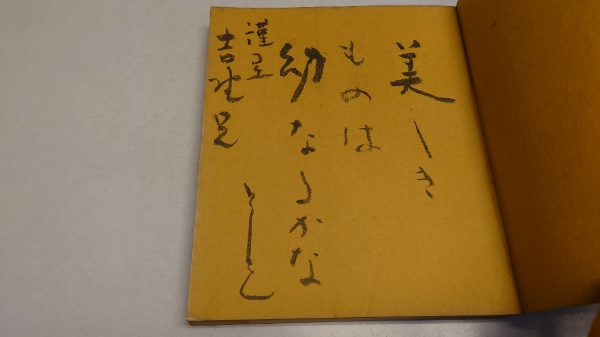 美しき
ものは
幼なるかな
としを
謹呈
吉野兄